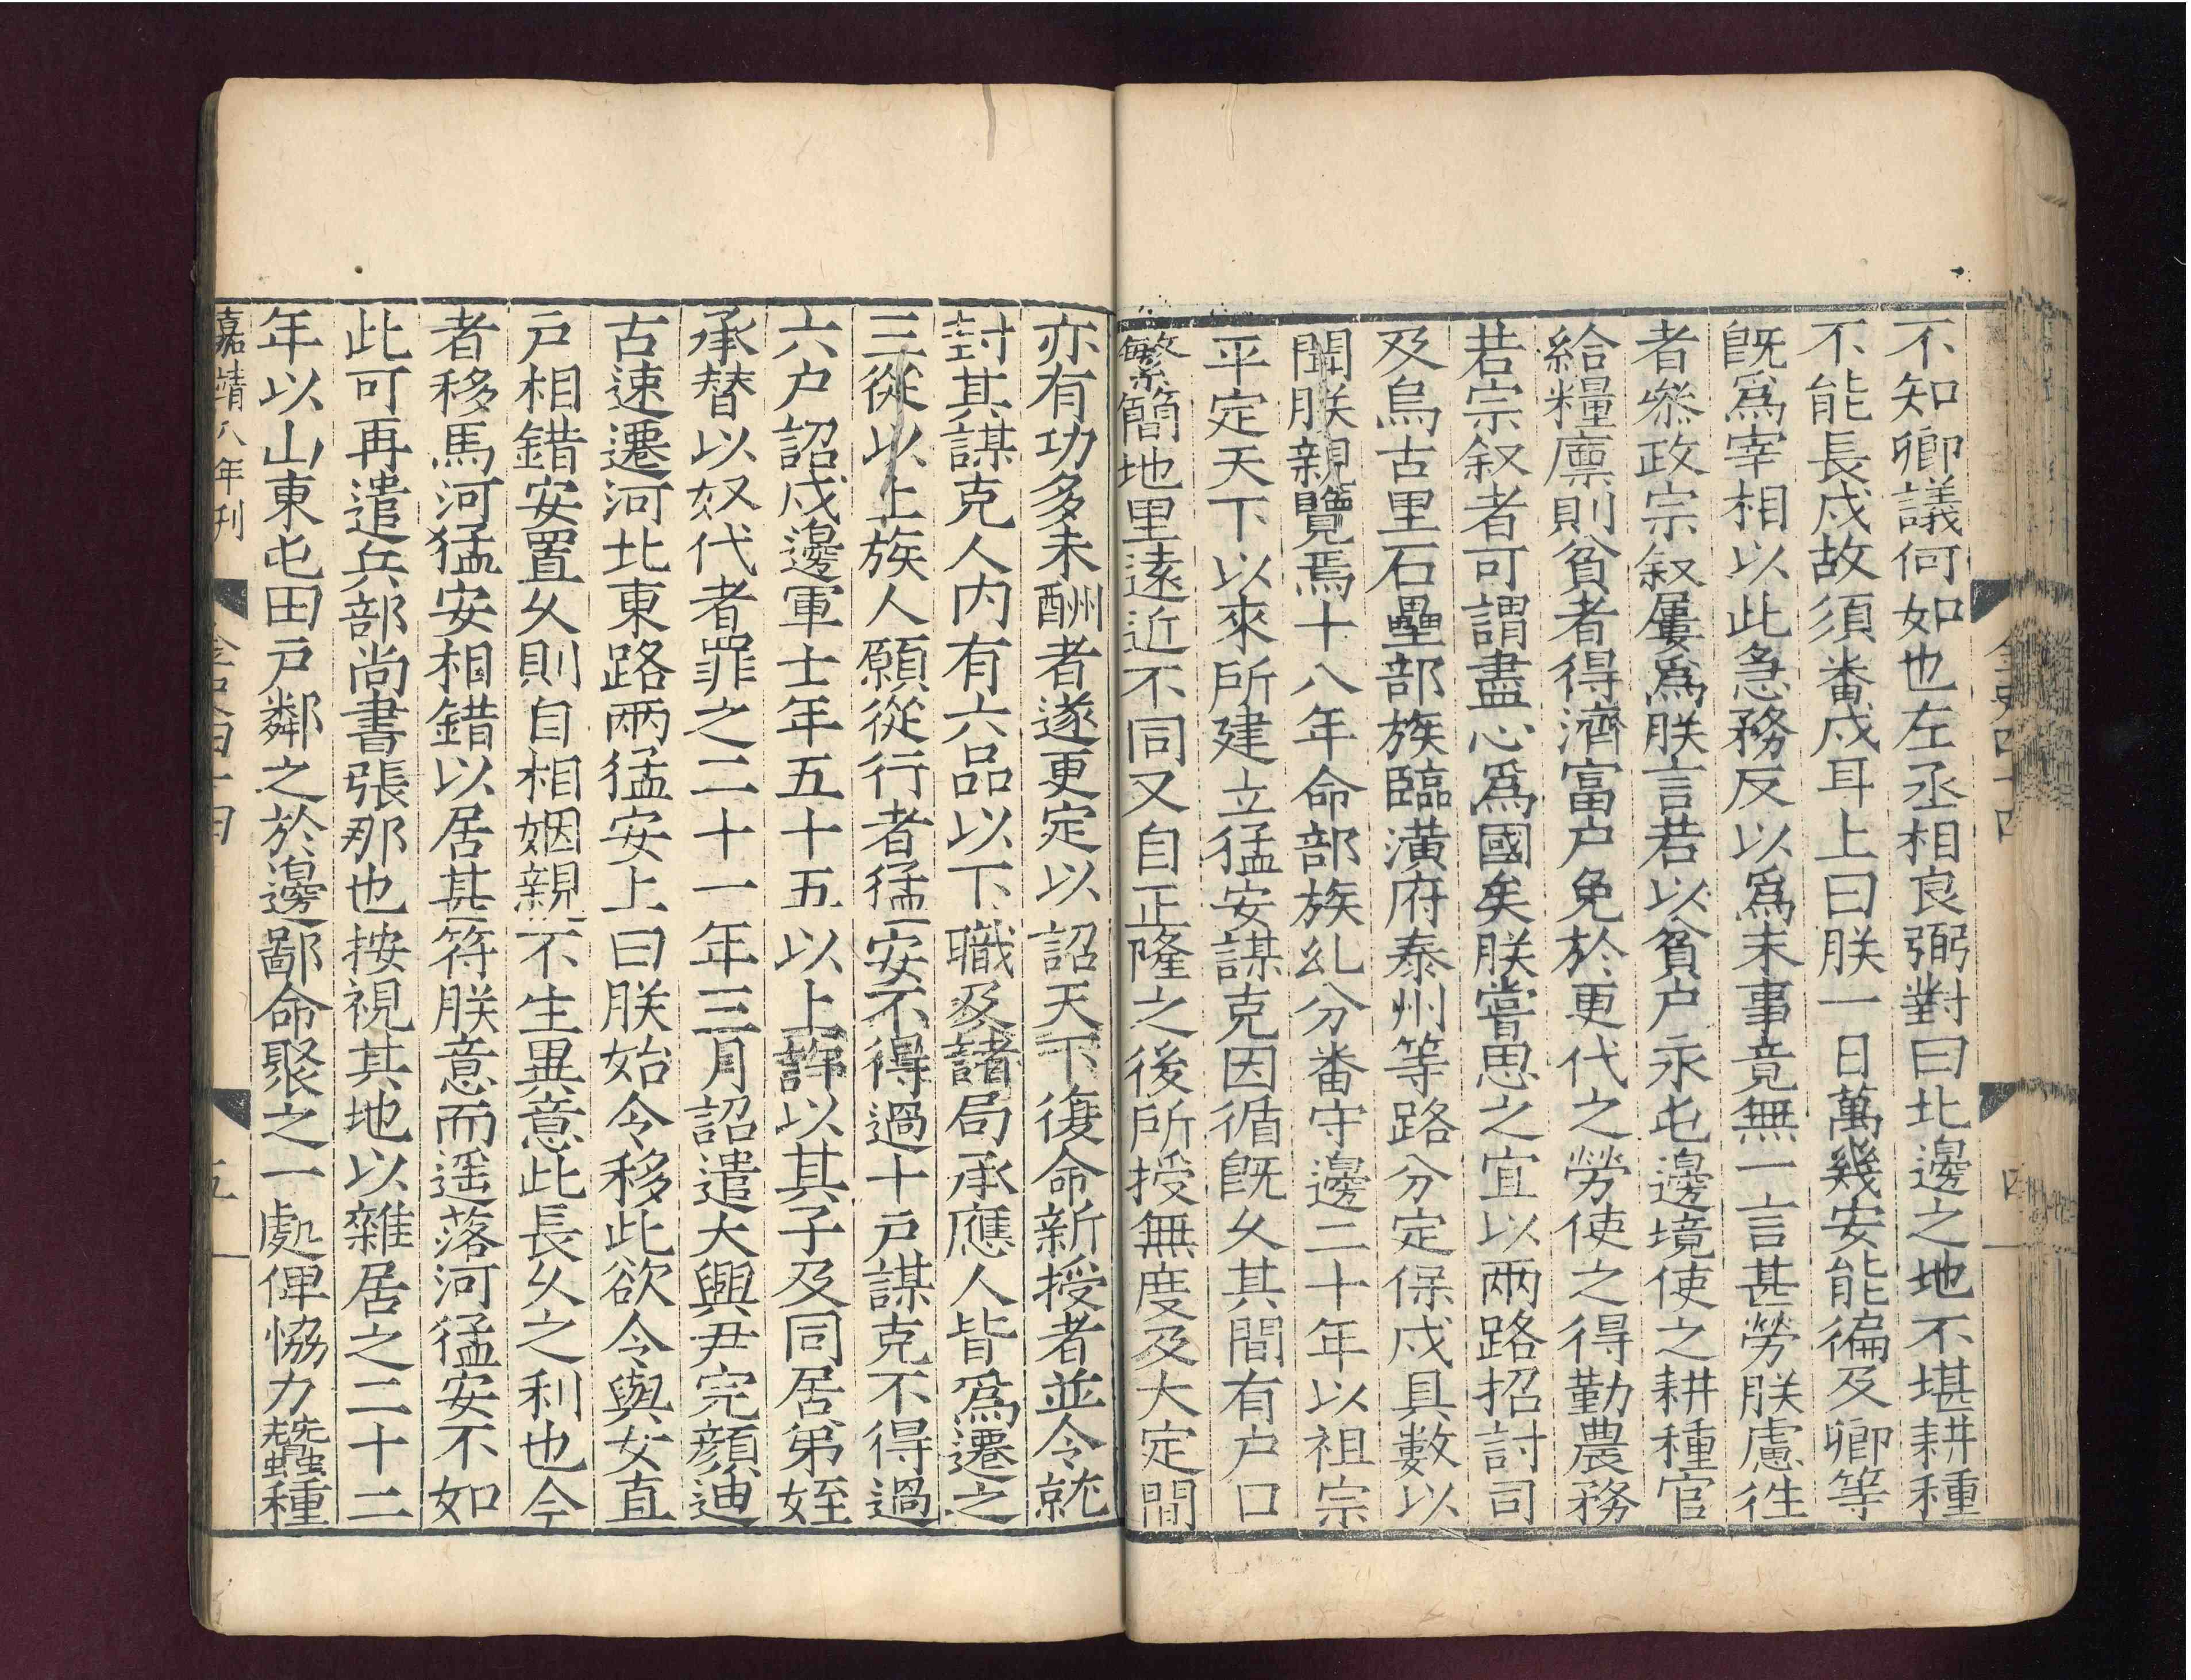 金史四十四
四
不知卿議何如也左丞相良弼對曰北邊之地不堪耕種
不能長戍故須番戍耳上曰朕一日萬幾安能徧及卿等
旣爲宰相以此急務反以爲末事竟無一言甚勞朕慮徃
者叅政宗叙屢爲朕言若以貧户永屯邊境使之耕種官
給糧廪則貧者得濟富户免於更代之勞使之得勤農務
若宗叙者可謂盡心爲國矣朕嘗思之宜以兩路招討司
及烏古里石壘部族臨潢府泰州等路分定保戍具數以
聞朕親覽焉十八年命部族乣分番守邊二十年以祖宗
平定天下以來所建立猛安謀克因循旣乆其間有户口
繁簡地里遠近不同又自正隆之後所授無度及大定間
亦有功多未酬者遂更定以詔天下復命新授者並令就
封其謀克人内有六品以下職及諸局承應人皆爲遷之
三從以上族人願從行者猛安不得過十戸謀克不得過
六户詔戍邊軍士年五十五以上許以其子及同居弟姪
承替以奴代者罪之二十一年三月詔遣大興尹完顔迪
古速遷河北東路兩猛安上曰朕始令移此欲令與女直
戸相錯安置乆則自相姻親不生異意此長乆之利也今
者移馬河猛安相錯以居甚符朕意而遥落河猛安不如
此可再遣兵部尚書張那也按視其地以雜居之二十二
年以山東屯田戸鄰之於邊鄙命聚之一處俾恊力蠶種
嘉靖八年刊
金史四十四
五